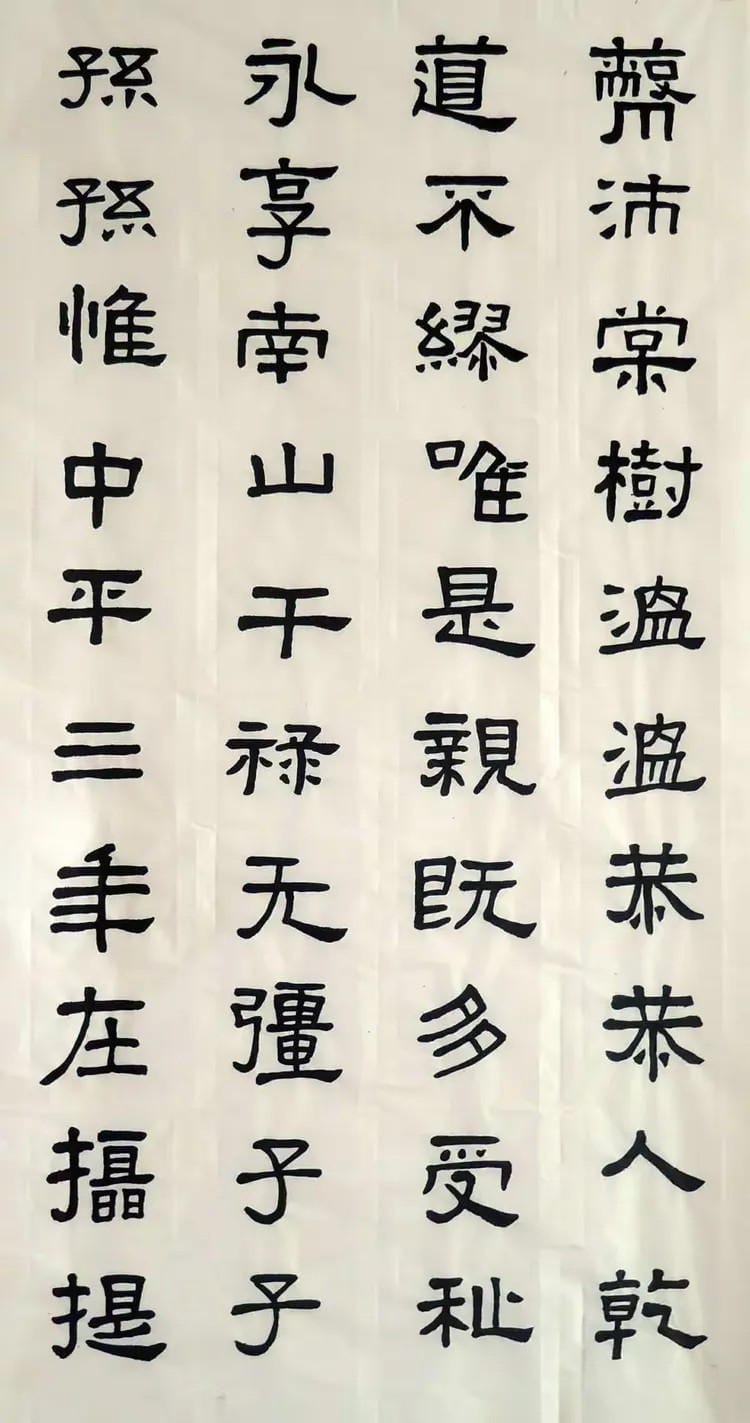 蔽沛棠樹溫溫恭恭人乾
道不繆唯是親既多受祉
永享南山干祿无彊子子
孫孫惟中平三年在攝提